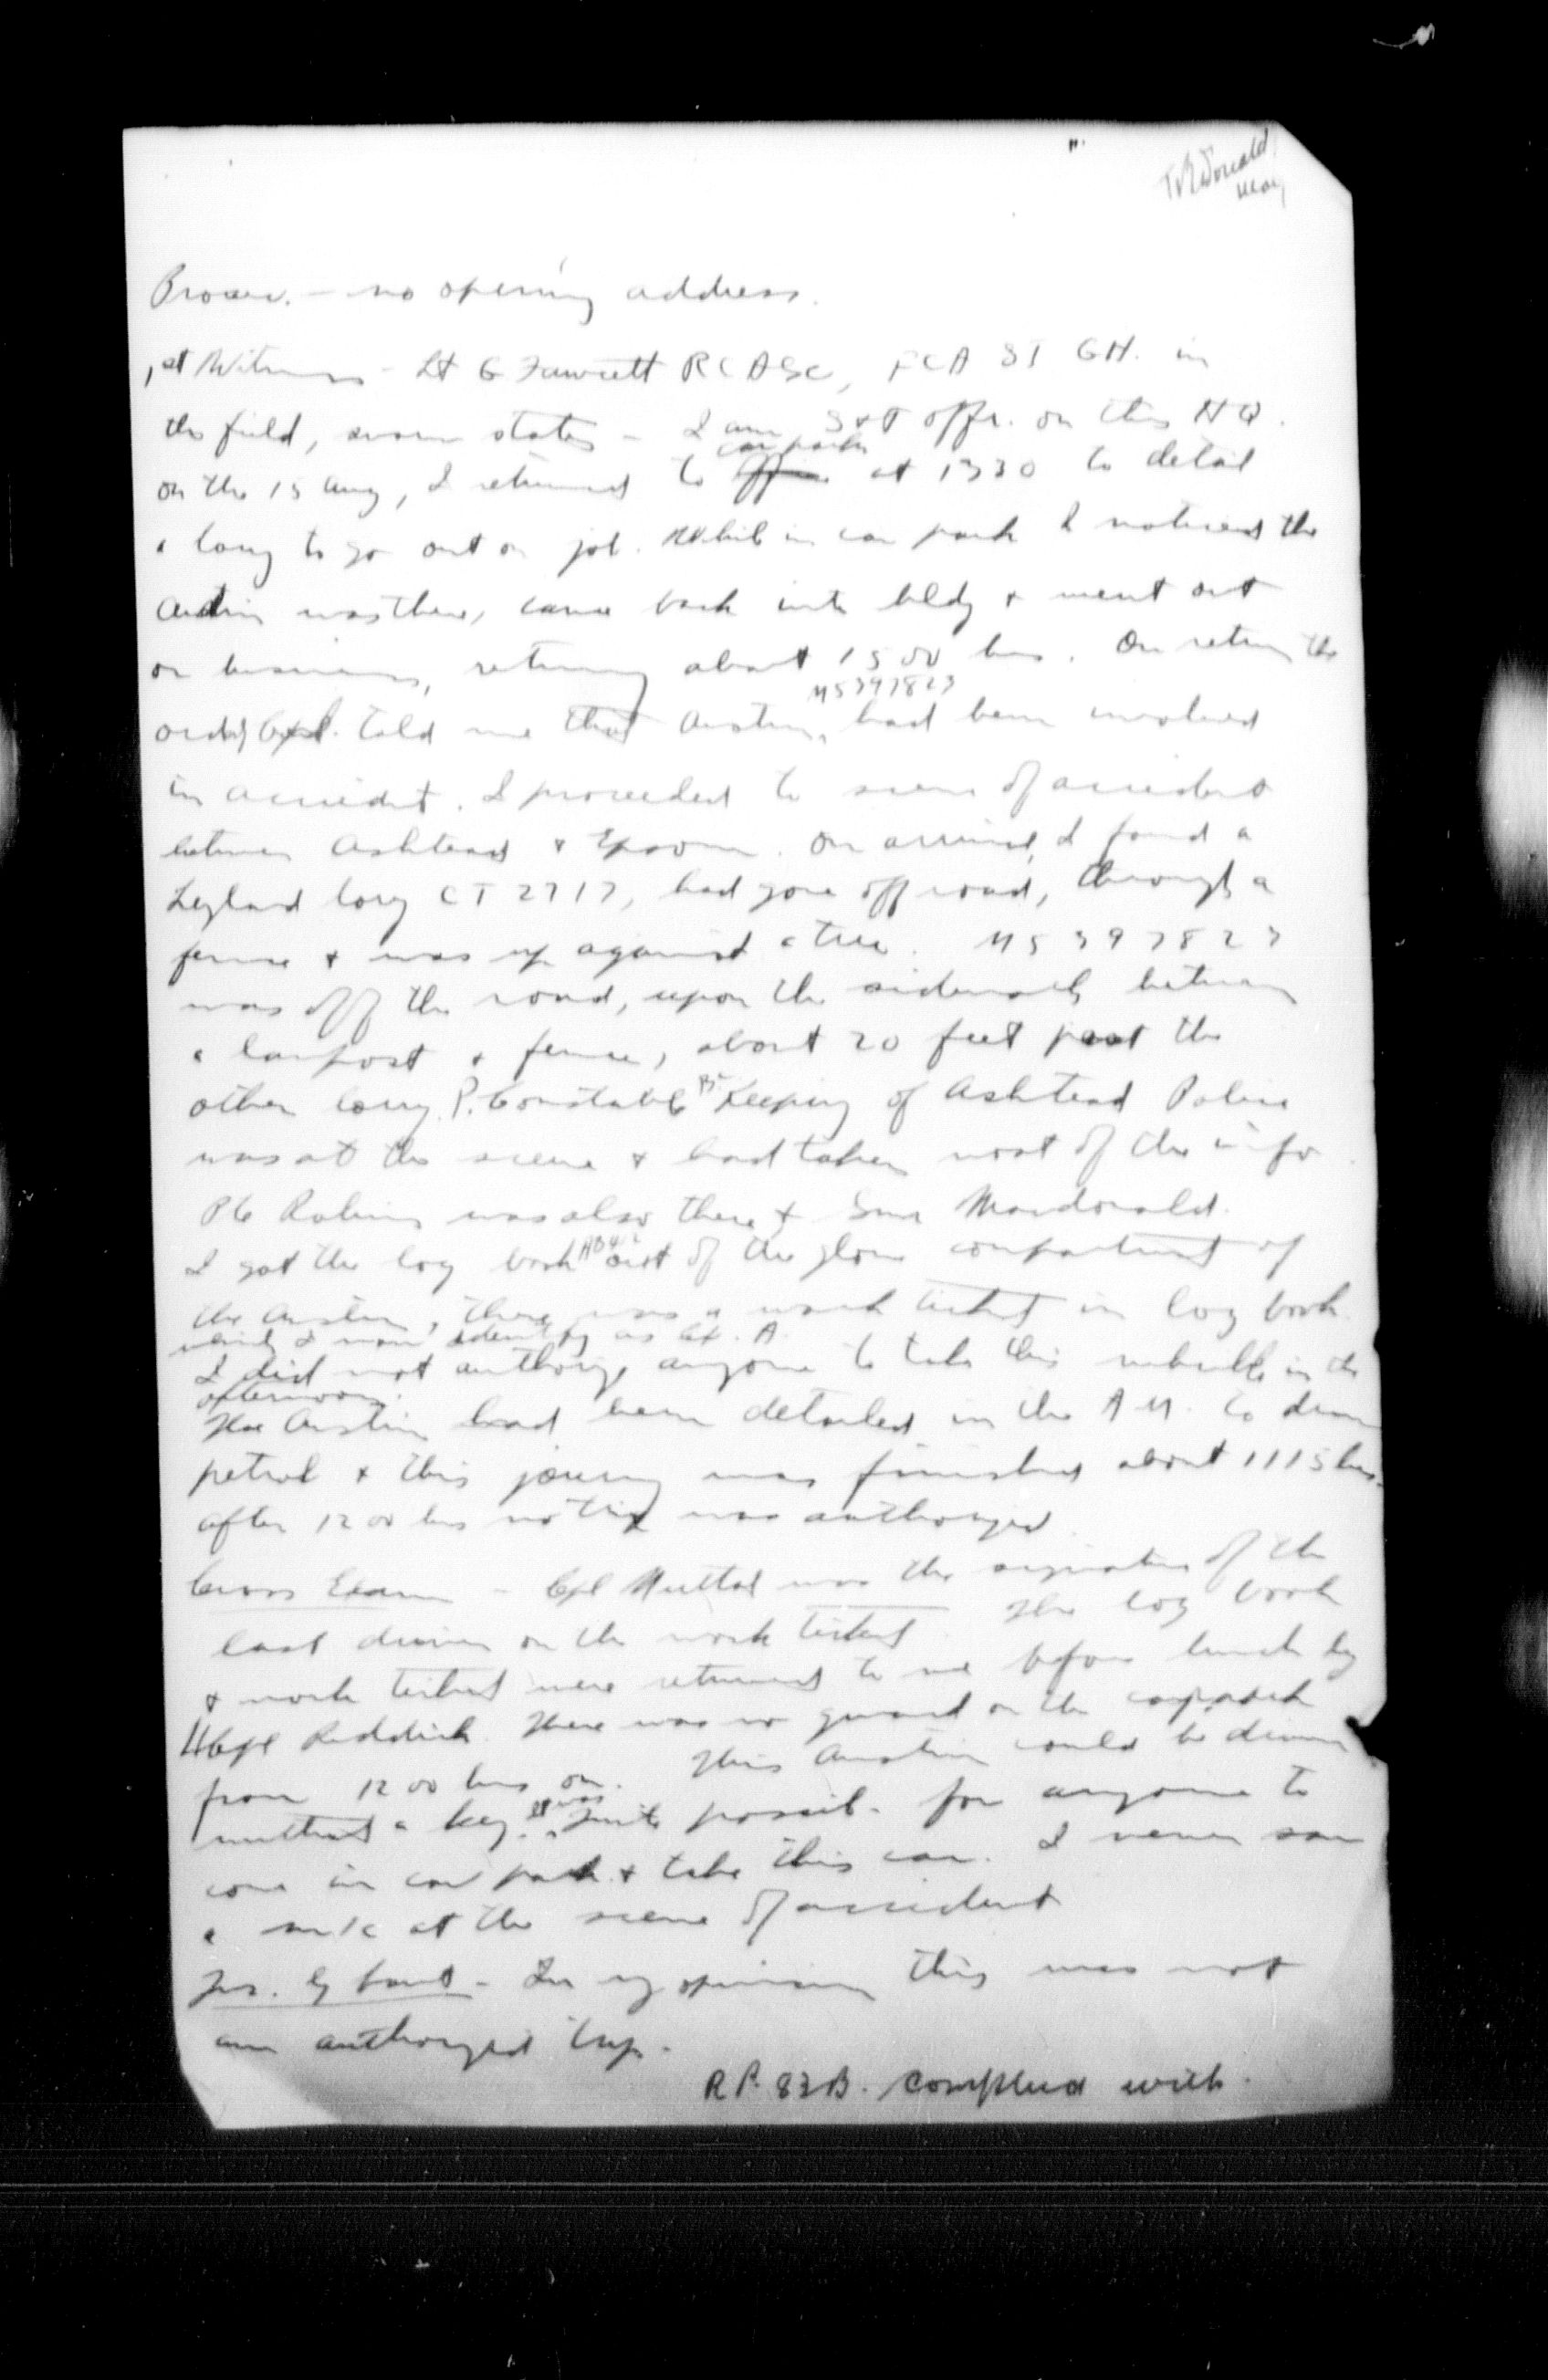 McDonald
Maj
Prosec. - no opening address.
1st Witness - Lt G Fawcett RCASC, FCA ST GH. in
the field, sworn states - I am S&T offr. on this HQ.
car park
on the 15 Aug, I returned to at 1330 to detail
a lorry to go out on job. While in car park I noticed the
Austin was there, came back into bldg & went out
on business, returning about 1500 hrs. On return the
M5397823
ordly Cpl. told me that Austin, had been involved
in accident. I proceeded to scene of accident
between Ashtead & Epsom. On arrival, I found a
Leyland lorry CT 2717, had gone off road, through a
fence & was up against a tree. M5397823
was off the road, upon the sidewalk between
a lampost & fence, about 20 feet past the
other lorry. P. Constable Keeping of Ashtead Police
was at the scene & had taken most of the info
Pte Robins was also there & Gnr Macdonald.
I got the log book out of the glove compartment of
the Austin, there was a work ticket in log book.
which I now identify as Ex. A.
I did not authorize anyone to take this vehicle in the
afternoon.
The Austin had been detailed in the A.M. to draw
petrol & this journey was finished about 1115 hrs.
after 1200 hrs nothing was authorized
Cross Exam - Cpl Nuttal was the signature of the
last driver on the work ticket. The log book
& work ticket were returned to me before lunch by
L/Cpl Reddick. There was no guard on the carpark
from 1200 hrs on. This Austin could be driven
without a key. It was quite possib. for anyone to
come in car park & take this car. I never saw
a m/c at the scene of accident
Ques. by Court - In my opinion this was not
an authorized trip.
R.P. 83B. complied with.